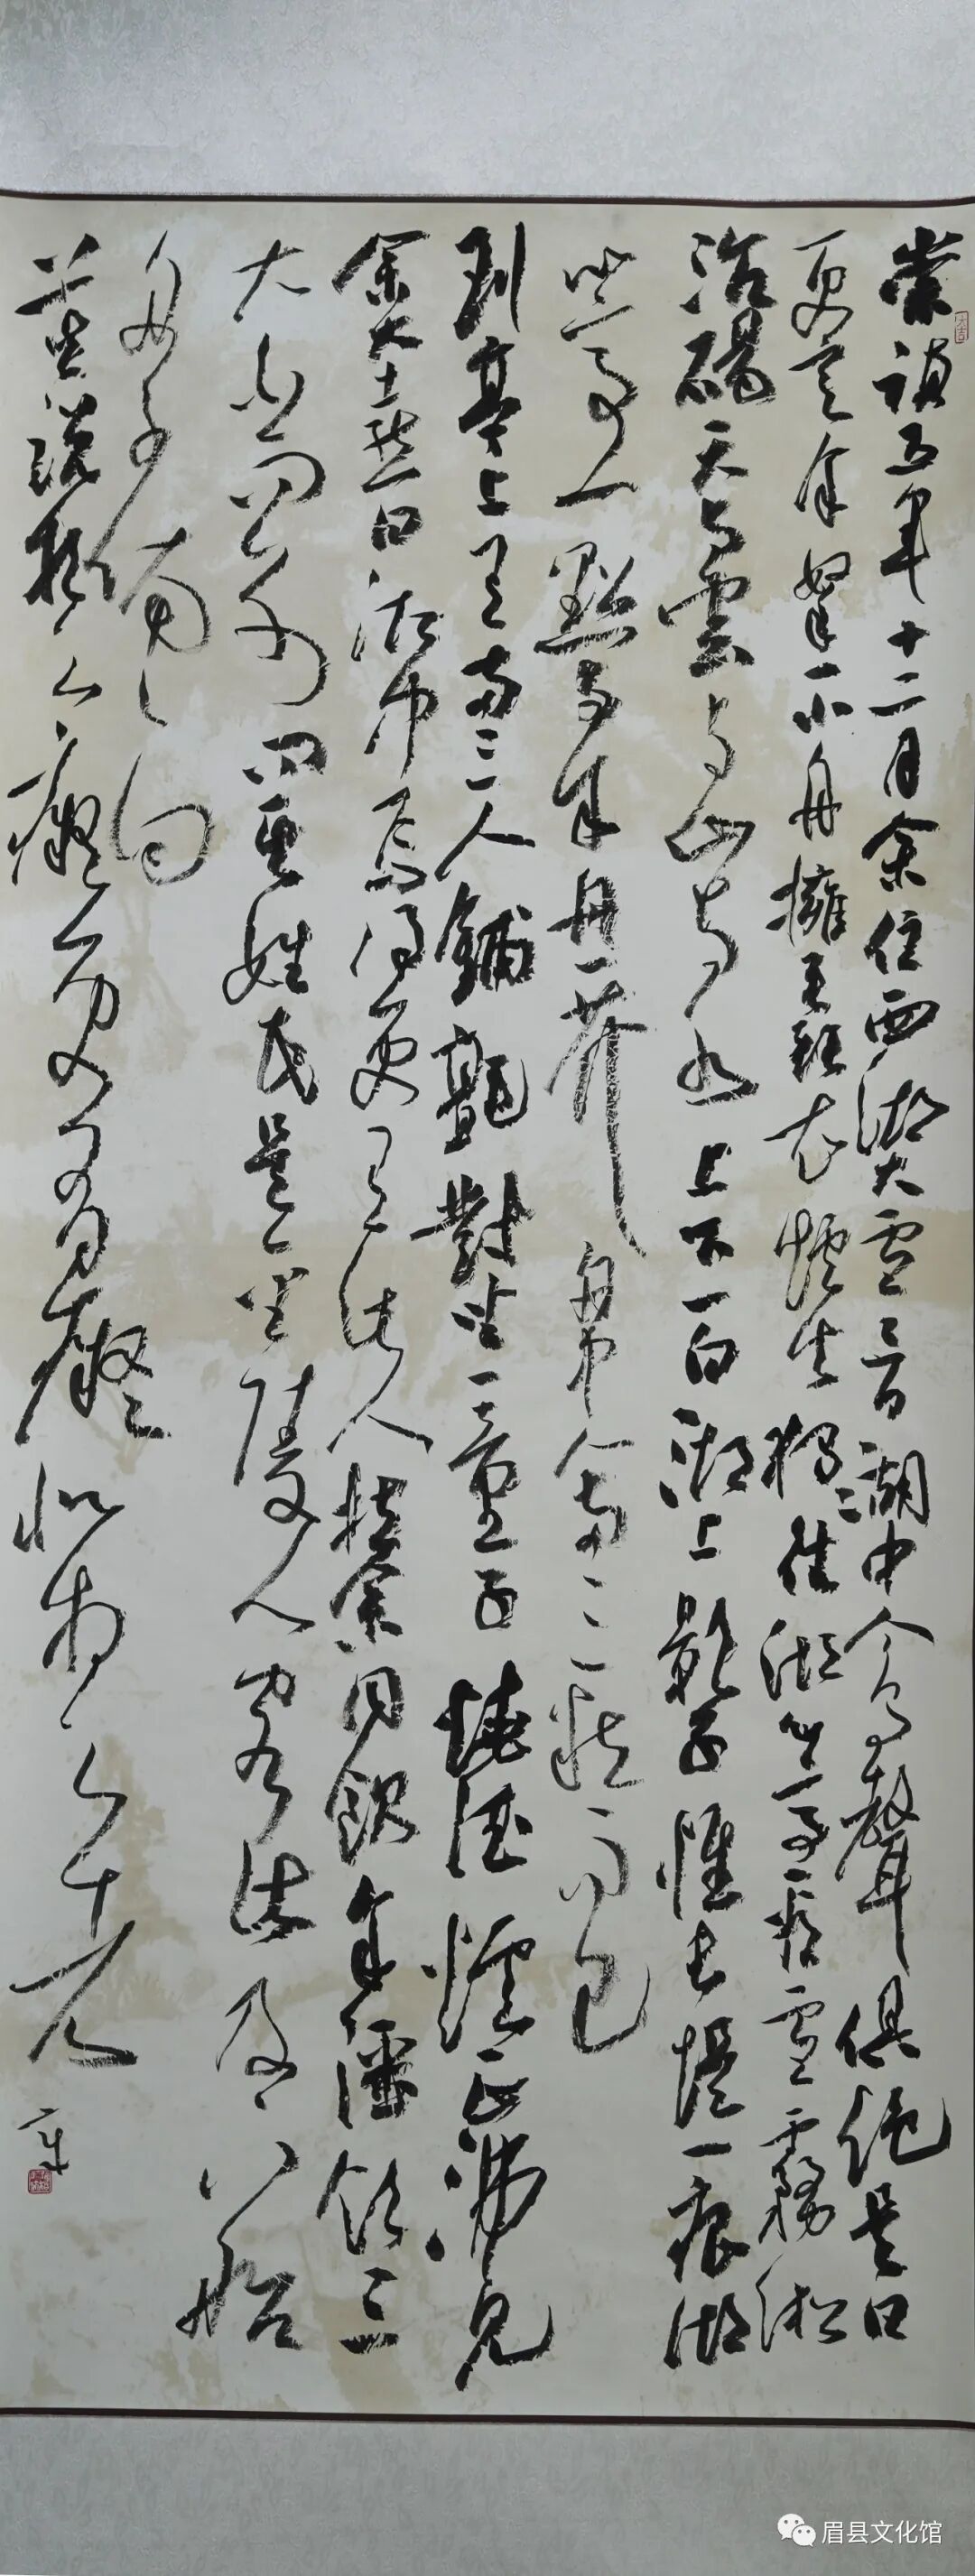 崇禎五年十二月余住西湖大雪三日湖中人鳥聲俱絕是日
更定余拏一小舟擁毳衣爐火獨往湖心亭看雪霧淞
沆碭天與雲與山與水上下一白湖上影子惟長堤一痕湖
心亭一點與余舟一芥舟中人兩三粒而已
到亭上有兩三人鋪氈對坐一童子燒酒爐正沸見
余大喜曰湖中焉得更有此人拉余同飲余強飲三
大白而別問其姓氏是金陵人客此及下船
舟子喃喃曰
莫說相公癡更有癡似相公者
大吉
眉县文化馆